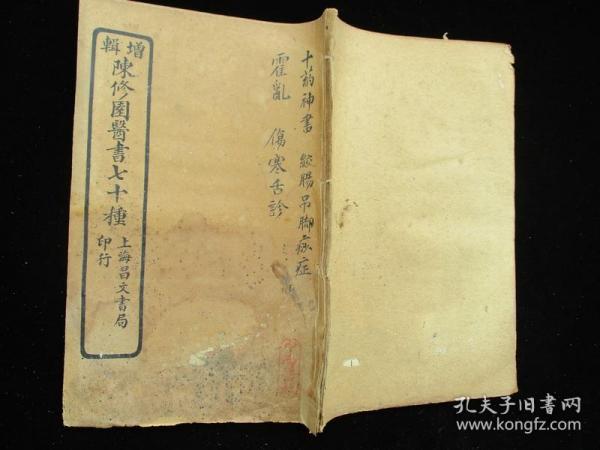 增輯
陳修園醫書七十種
上海昌文書局
印行
十药神書 絞腸吊脚痧症
霍亂 傷寒舌診
孔夫子旧書网
www.kongfz.com